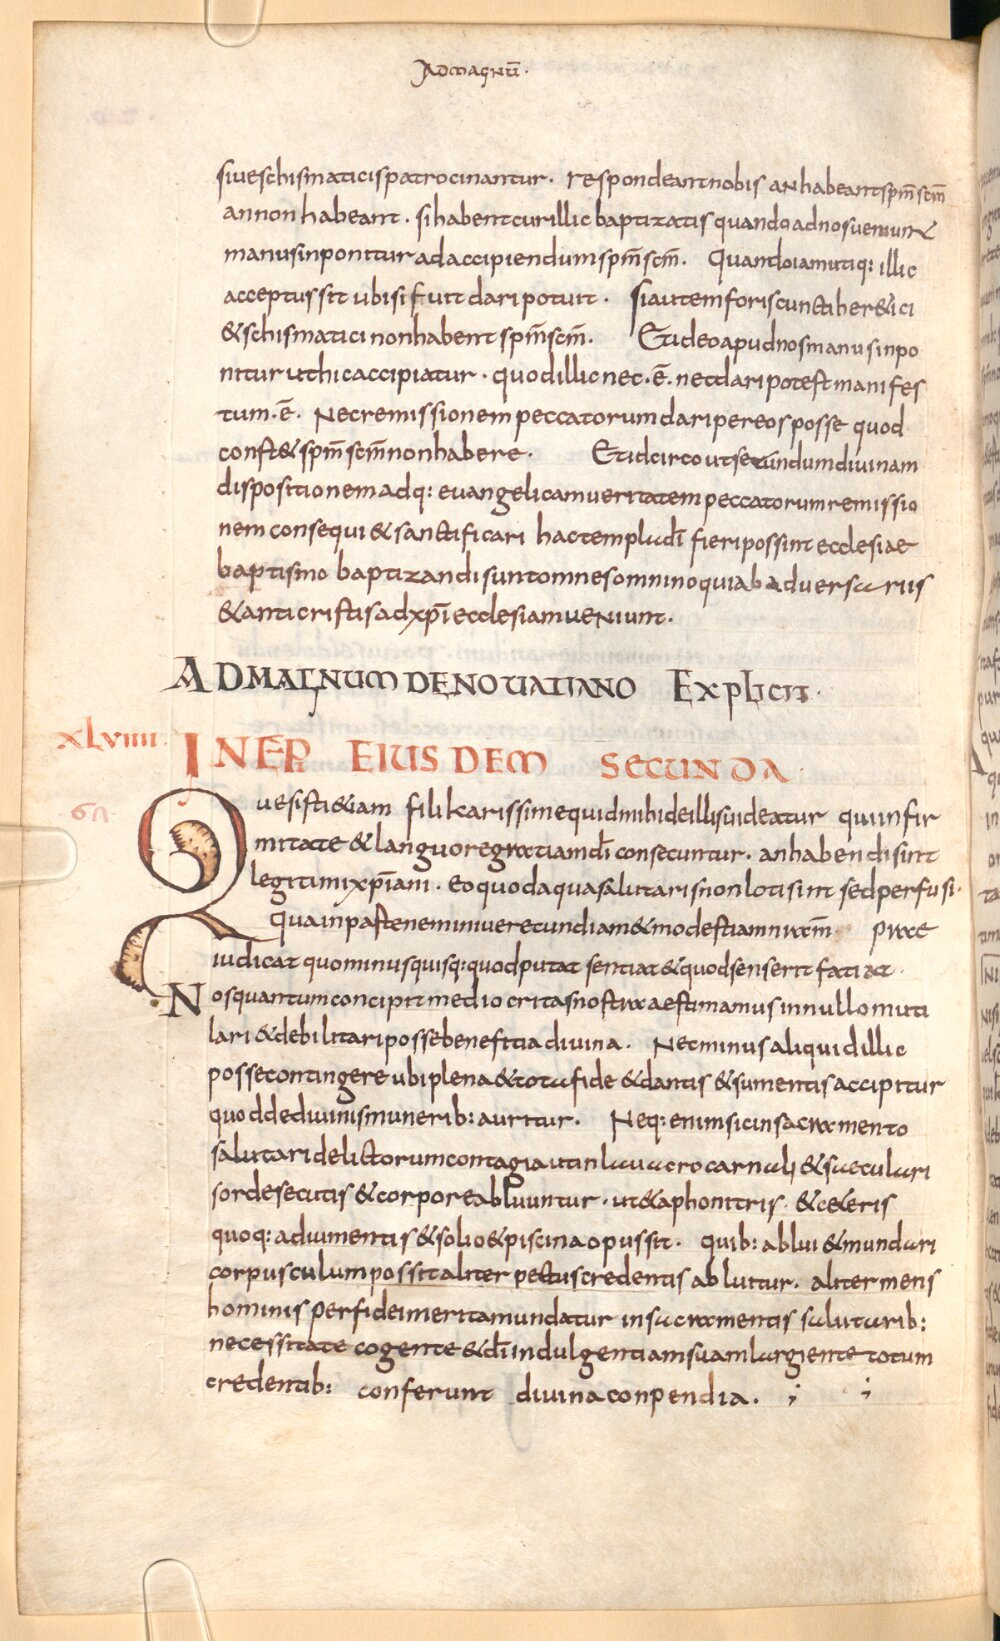 Ad magnū·
siue schismaticis patrocinantur· respondeant nobis an habeant spm̄ scm̄
an non habeant· si habent cur illic baptizatis quando ad nos ueniunt
manus inponitur ad accipiendum spm̄ scm̄. Quando iam utiq: illic
acceptus sit ubi si fuit dari potuit· si autem foris cuncti her&ici
& schismatici non habent spm̄ scm̄. Et ideo apud nos manus inpo
nitur ut hic accipiatur· quod illic nec·ē· nec dari potest manifes
tum·ē· Nec remissionem peccatorum dari per eos posse quod
const& spm̄ scm̄ non habere· Et idcirco ut secundum diuinam
dispositionem adq: euangelicam ueritatem peccatorum remissio
nem consequi & sanctificari hac templu dī fieri possint ecclesiae
baptismo baptizandi sunt omnes omnino qui ab aduersariis
& anticristis ad xp̄i ecclesiam ueniunt.
AD MAGNUM DE NOUATIANO EXPLICIT·
XLVIIII INEP EIUSDEM SECUNDA
Quesisti &iam fili karissime quid mihi de illis uideatur qui infir
mitate & languore gratiam dī consecuntur· an habendi sint
legitimi xp̄iani· eo quod aqua salutaris non loti sint sed perfusi·
Qua in paste nemini uerecundiam & modestiam nrām prae
iudicat quominus quisq: quod putat sentiat & quod senserit faciat·
Nos quantum concipit mediocritas nostra aestimamus in nullo muti
lari & debilitari posse beneficia diuina. Nec minus aliquid illic
posse contingere ubi plena & tota fide & dantis & sumentis accipitur
quod de diuinis munerib: auritur. Neq: enim sic in sacramento
salutari delictorum contagia ut in lauacro carnali & saeculari
sordes ecutis & corpore abluuntur· ut & aphonitris· & ceteris
quoq: adiumentis & solio & piscina opus sit. quib: ablui & mundari
corpusculum possit aliter pectus credentis abluitur· aliter mens
hominis per fidei merita mundatur in sacramentis salutarib:
necessitate cogente & dī indulgentiam suam largiente totum
credentib: conferunt diuina conpendia. ; ;